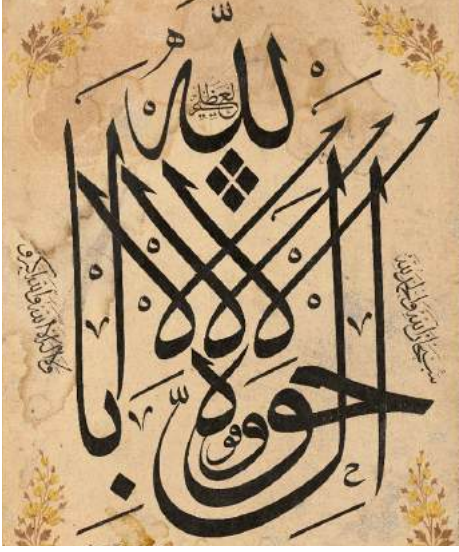 لا حول ولا قوة إلا بالله
العلي العظيم
سبحان الله والحمد لله
ولا إله إلا الله والله أكبر